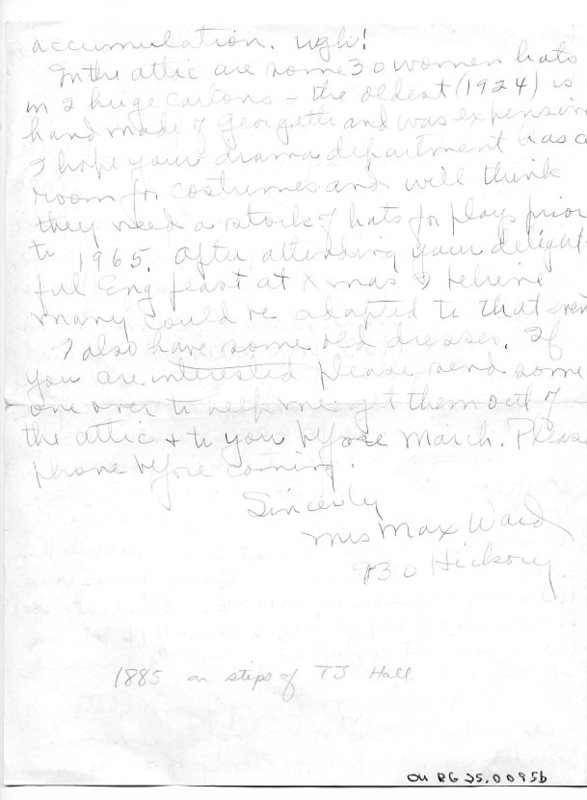 accumulation. Ugh!
In the attic are some 30 women hats
in 2 huge cartons – the oldest (1924) is
hand made of Georgette and was expensive
I hope your drama department has a
room for costumes and will think
they need a stock of hats for plays prior
to 1965. After attending your delight-
ful Eng feast at Xmas I believe
many could be adapted to that event
I also have some old dresses. If
you are interested please send some
one over to help me get them out of
the attic & to you before March. Please
phone before coming.
Sincerly
Mrs Max Ward
930 Hickory
1885 on steps of TJ Hall
OU RG 25.0095b